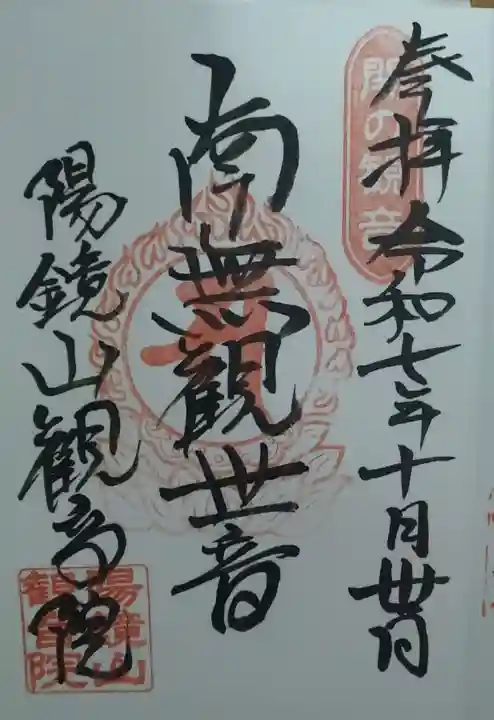 奉拝 令和七年十月丗日
関の観音
南無観世音
陽鏡山観音院
陽鏡山
観音院